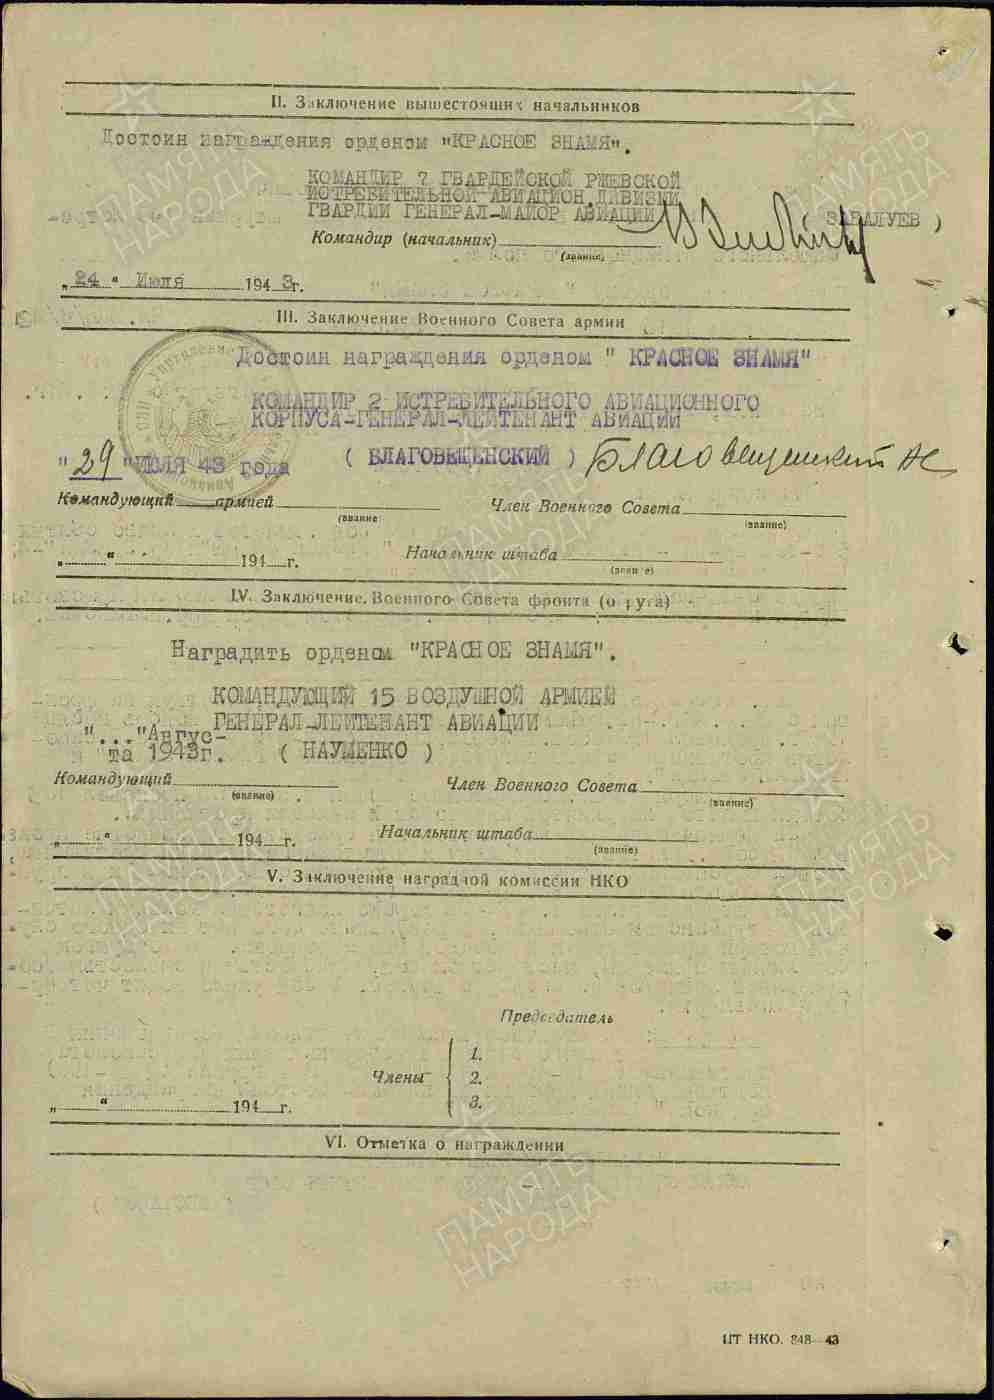 II. Заключение вышестоящих начальников
Достоин награждения орденом "КРАСНОЕ ЗНАМЯ".
КОМАНДИР 7 ГВАРДЕЙСКОЙ РЖЕВСКОЙ
ИСТРЕБИТЕЛЬНОЙ АВИАЦИОН.ДИВИЗИИ
ГВАРДИИ ГЕНЕРАЛ-МАЙОР АВИАЦИИ ЗАБАЛУЕВ )
Командир (начальник)
(звание)
„24“ Июля 1943г.
III. Заключение Военного Совета армии
Достоин награждения орденом " КРАСНОЕ ЗНАМЯ"
КОМАНДИР 2 ИСТРЕБИТЕЛЬНОГО АВИАЦИОННОГО
КОРПУСА-ГЕНЕРАЛ-ЛЕЙТЕНАНТ АВИАЦИИ
"29 "ИЮЛЯ 43 года ( БЛАГОВЕЩЕНСКИЙ ) Благовещенский
Командующий армией Член Военного Совета
(звание) (звание)
„ “ 194 г. Начальник штаба
(звание)
IV. Заключение Военного Совета фронта (округа)
Наградить орденом "КРАСНОЕ ЗНАМЯ".
КОМАНДУЮЩИЙ 15 ВОЗДУШНОЙ АРМИЕЙ
ГЕНЕРАЛ-ЛЕЙТЕНАНТ АВИАЦИИ
"..."Авгус-
та 1943г. ( НАУМЕНКО )
Командующий Член Военного Совета
(звание) (звание)
„ “ 194 г. Начальник штаба
(звание)
V. Заключение наградной комиссии НКО
Председатель
1.
Члены 2.
3.
„ “ 194 г.
VI. Отметка о награждении
ЦТ НКО. 848—43
ПАМЯТЬ
НАРОДА